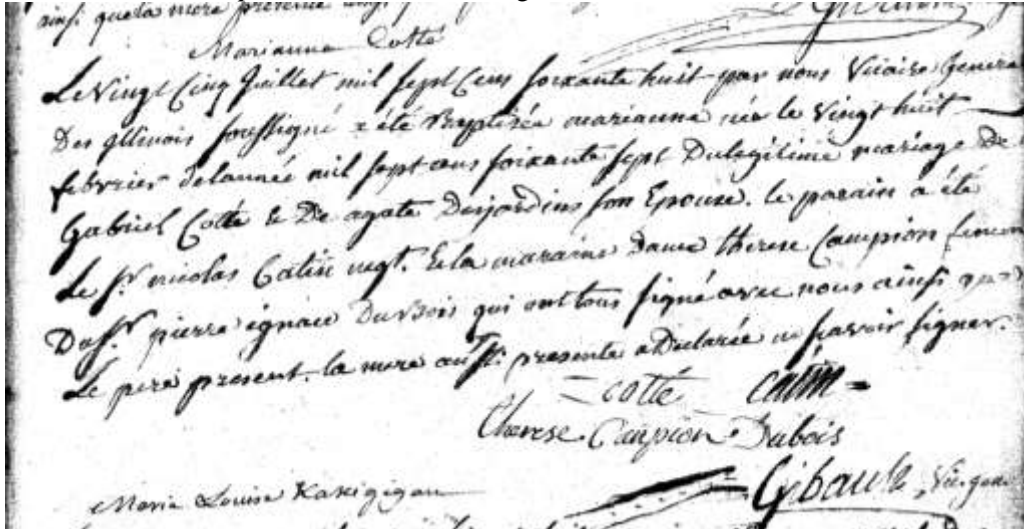 ainsi que la mere presente
Marianne Cotté
Le vingt Cinq Juillet mil sept Cens soixante huit par nous Vicaire General
Des Illinois soussigné a été Baptisée marianne née le vingt huit
febvrier delannée mil sept cens soixante sept Dulegitime mariage De
Gabriel Cotté & De agate Desjardins son Epouse. le parain a été
Le Sr. nicolas Catin negt. Et la maraine Dame therese Campion
Du Sr. pierre ignace DuBois qui ont tous signé avec nous ainsi que
Le pere présent. la mere aussi presente a Declarée ne savoir signer.
= cotté catin =
Therese Campion Dubois
Gibault Vic. gen.
Marie Louise Kakigigan